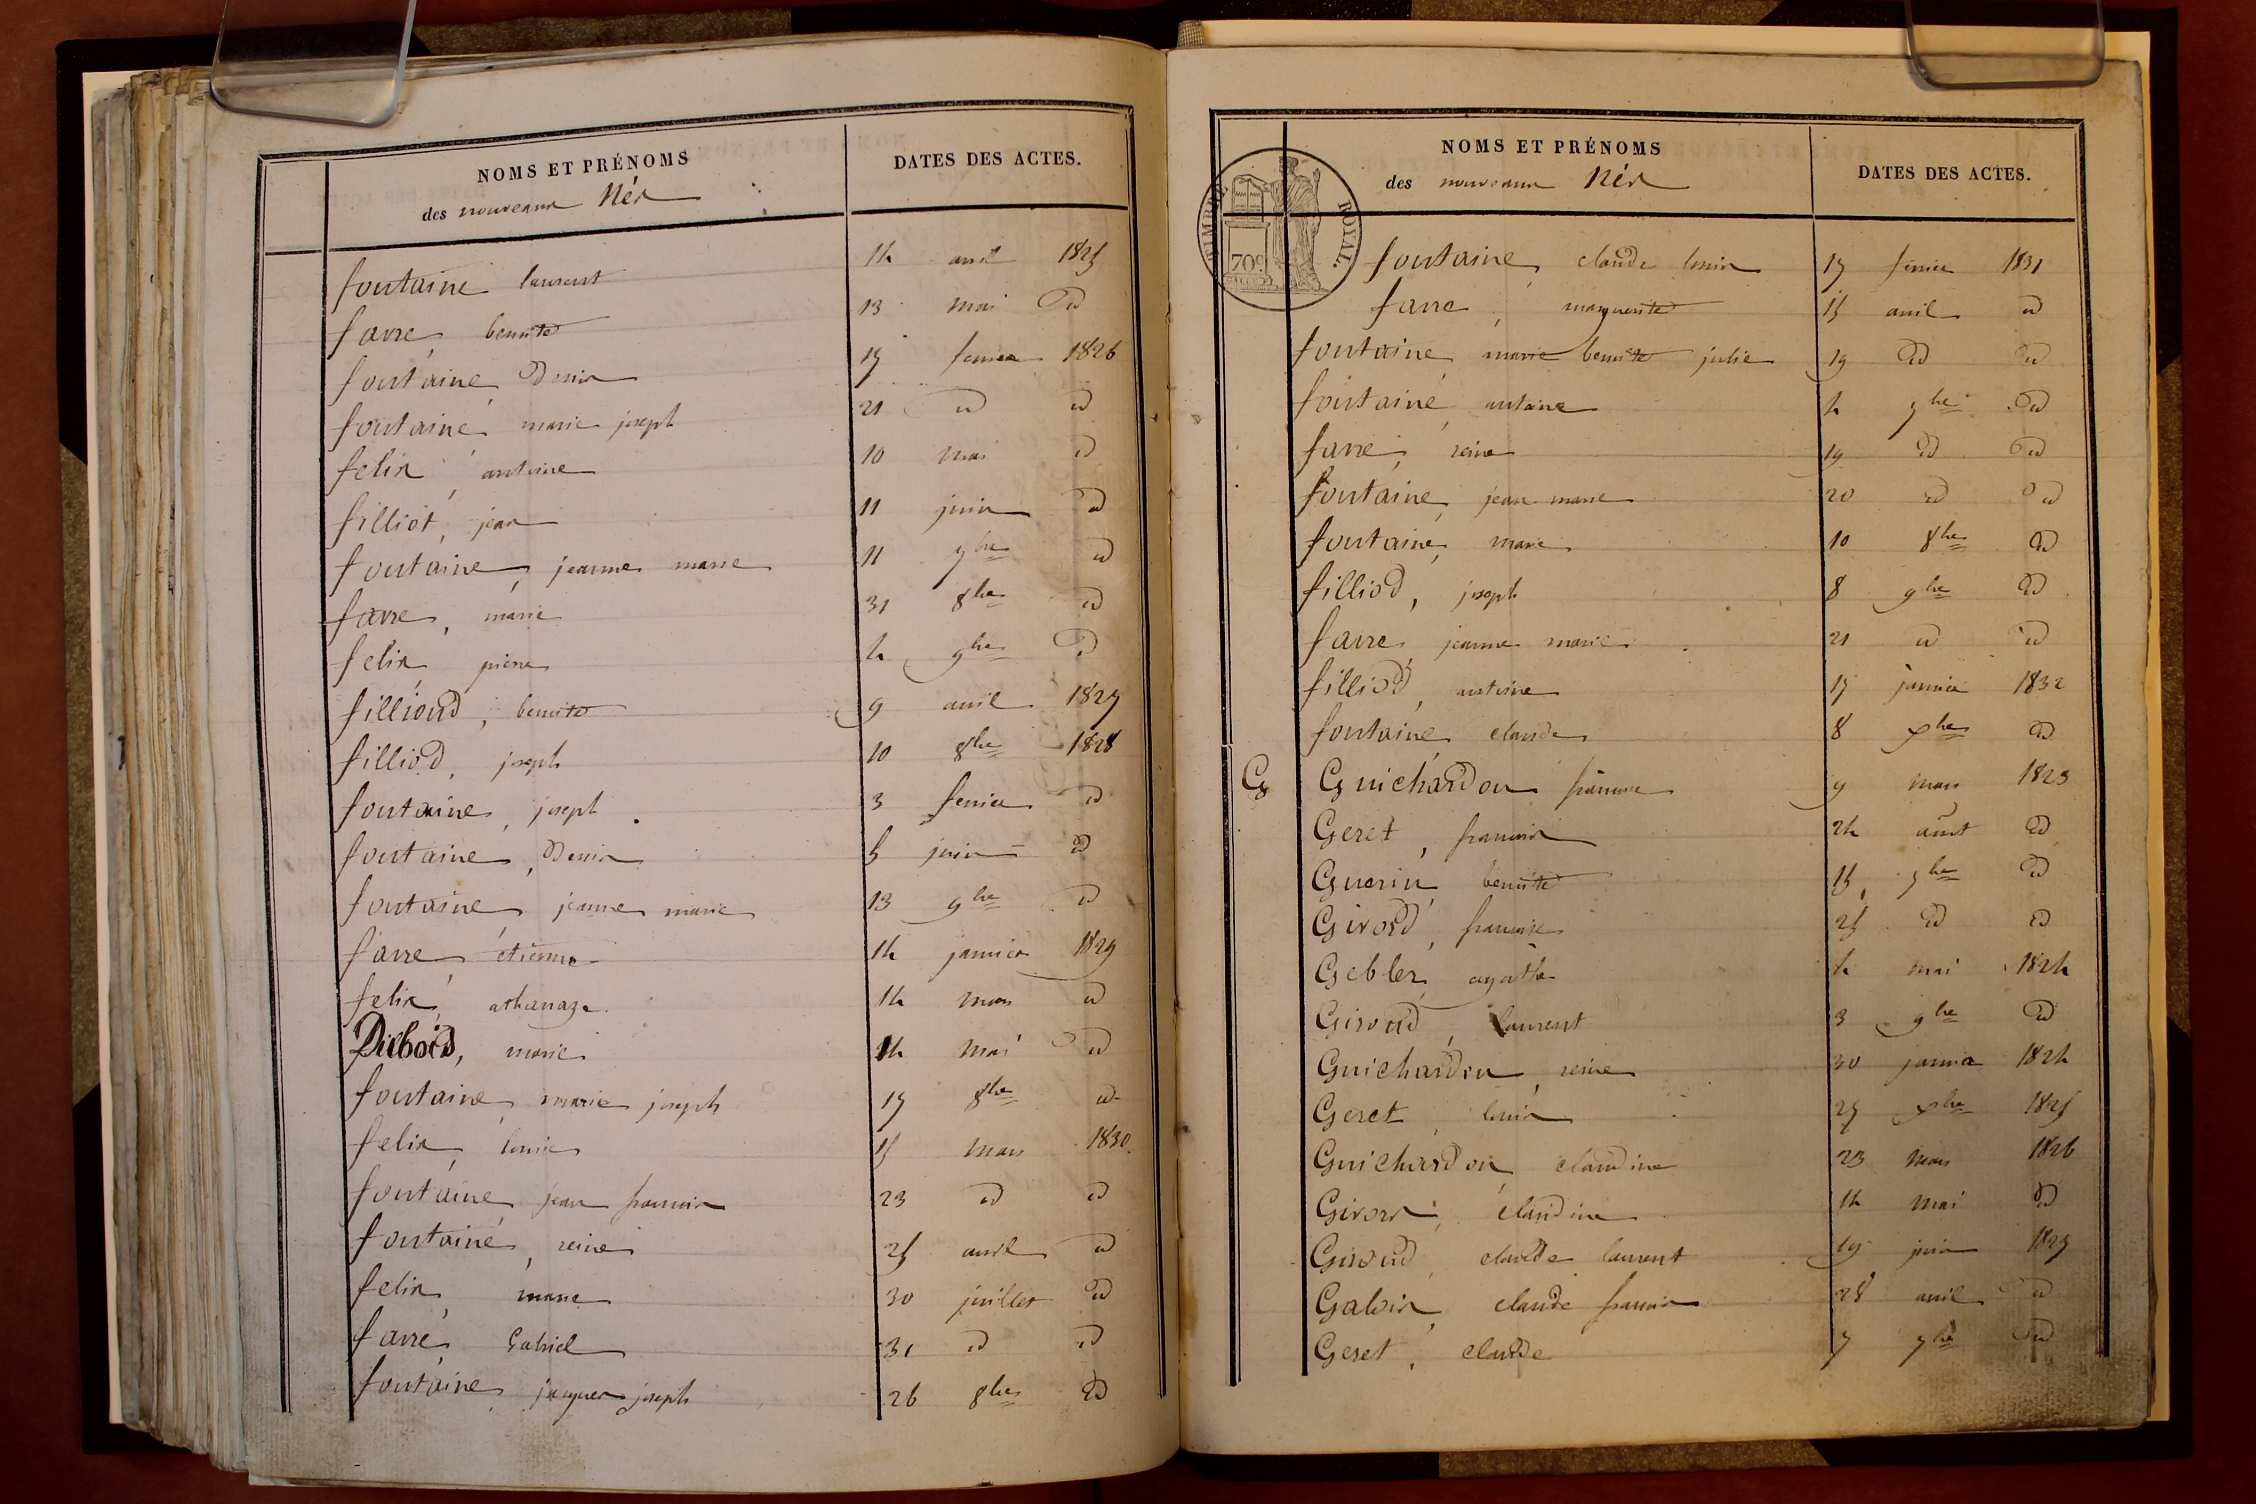 NOMS ET PRÉNOMS
DATES DES ACTES.
des nouveaux Nés
fontaine laurent 14 avril 1825
favre, benoite 13 mai id
fontaine, Denis 17 fevrier 1826
fontaine marie joseph 21 id id
felix, antoine 10 mai id
filliot, jean 11 juin id
fontaine, jeanne marie 11 7bre id
favre, marie 31 8bre id
felix, pierre 4 9bre id
filliond, benoite 9 avril 1827
filliod, joseph 10 8bre 1828
fontaine, joseph 3 fevrier id
fontaine, Denis 5 juin id
fontaine, jeanne marie 13 9bre id
favre, étienne 14 janvier 1829
felix, athanaze 14 mars id
Dubois, marie 14 mai id
fontaine, marie joseph 17 8bre id
felix, louise 15 mars 1830.
fontaine, jean francois 23 id id
fontaine, reine 25 avril id
felix, marie 30 juillet id
favre, Gabriel 31 id id
fontaine, jacques joseph 26 8bre id
NOMS ET PRÉNOMS
DATES DES ACTES.
des nouveaux Nés
TIMBRE ROYAL.
70c
fontaine, claude louis 17 fevrier 1831
favre, marguerite 15 avril id
fontaine, marie benoite julie 19 id id
fontaine, antoine 4 7bre id
favre, reine 19 id id
fontaine, jean marie 20 id id
fontaine, marie 10 8bre id
filliod, joseph 8 9bre id
favre, jeanne marie 21 id id
filliod, antoine 17 janvier 1832
fontaine, claude 8 xbre id
G Guichardon francoise 9 mars 1823
Geret, francois 24 aout id
Guerin, benoite 15 7bre id
Girord, francoise 25 id id
Gebler, agathe 4 mai 1824
Giroud, laurent 3 9bre id
Guichardon, reine 30 janvier 1824
Geret, louis 27 xbre 1825
Guichardon, claudine 23 mars 1826
claudine 14 mai id
Giroud, claude laurent 19 juin 1827
claude francois 28 avril id
Geret, claude 7 7bre id